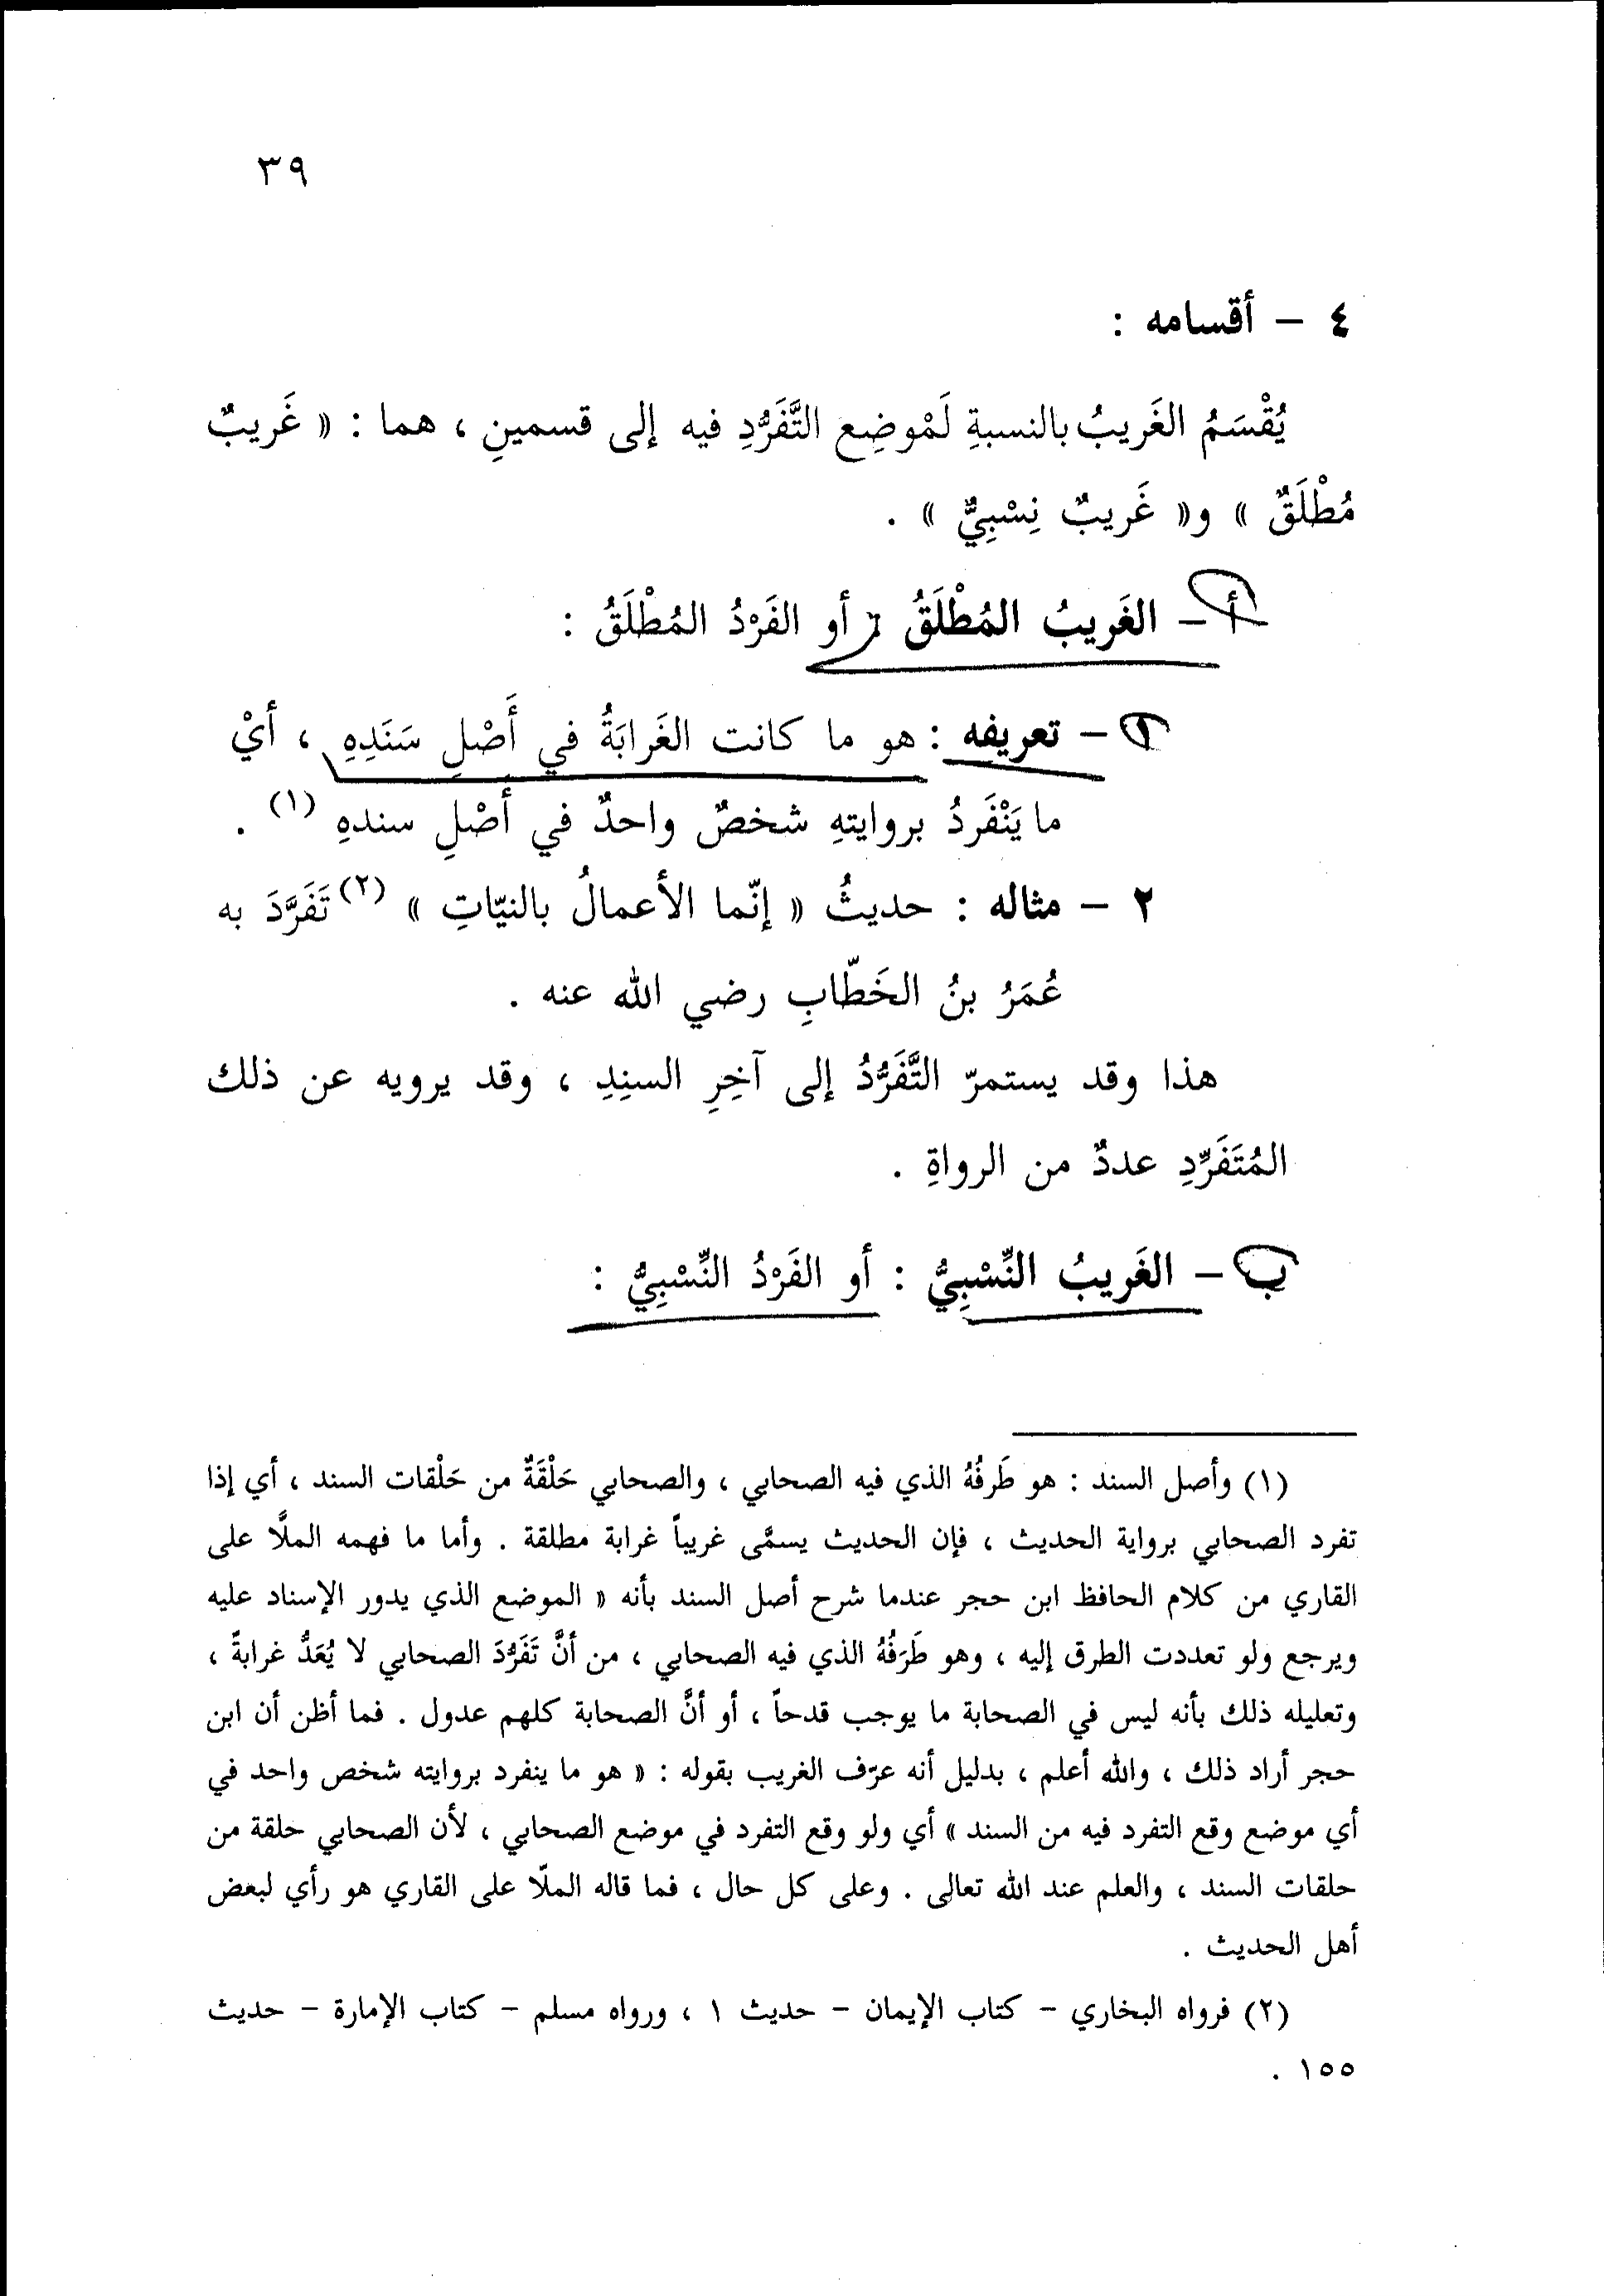 ٣٩
٤ – أقسامه :
يُقْسَمُ الغَريبُ بالنسبةِ لَمْوضِع التَّفَرُّدِ فيه إلى قسمينِ ، هما : « غَريبٌ
مُطْلَقٌ » و« غَريبٌ نِسْبِيٌّ » .
أ – الغَريبُ المُطْلَقُ : أو الفَرْدُ المُطْلَقُ :
١ – تعريفه : هو ما كانت الغَرابَةُ في أَصْلِ سَنَدِهِ ، أيْ
ما يَنْفَردُ بروايتهِ شخصٌ واحدٌ في أَصْلِ سندهِ (١) .
٢ – مثاله : حديثُ « إنّما الأعمالُ بالنيّاتِ » (٢) تَفَرَّدَ به
عُمَرُ بنُ الخَطّابِ رضي الله عنه .
هذا وقد يستمرّ التَّفَرُّدُ إلى آخِرِ السنِدِ ، وقد يرويه عن ذلك
المُتَفَرِّدِ عددٌ من الرواةِ .
ب – الغَريبُ النِّسْبِيُّ : أو الفَرْدُ النِّسْبِيُّ :
(١) وأصل السند : هو طَرفُهُ الذي فيه الصحابي ، والصحابي حَلْقَةٌ من حَلْقات السند ، أي إذا
تفرد الصحابي برواية الحديث ، فإن الحديث يسمَّى غريباً غرابة مطلقة . وأما ما فهمه الملَّا على
القاري من كلام الحافظ ابن حجر عندما شرح أصل السند بأنه « الموضع الذي يدور الإسناد عليه
ويرجع ولو تعددت الطرق إليه ، وهو طَرَفُهُ الذي فيه الصحابي ، من أنَّ تَفَرُّدَ الصحابي لا يُعَدُّ غرابةً ،
وتعليله ذلك بأنه ليس في الصحابة ما يوجب قدحاً ، أو أنَّ الصحابة كلهم عدول . فما أظن أن ابن
حجر أراد ذلك ، والله أعلم ، بدليل أنه عرّف الغريب بقوله : « هو ما ينفرد بروايته شخص واحد في
أي موضع وقع التفرد فيه من السند » أي ولو وقع التفرد في موضع الصحابي ، لأن الصحابي حلقة من
حلقات السند ، والعلم عند الله تعالى . وعلى كل حال ، فما قاله الملّا على القاري هو رأي لبعض
أهل الحديث .
(٢) فرواه البخاري – كتاب الإيمان – حديث ١ ، ورواه مسلم – كتاب الإمارة – حديث
١٥٥ .